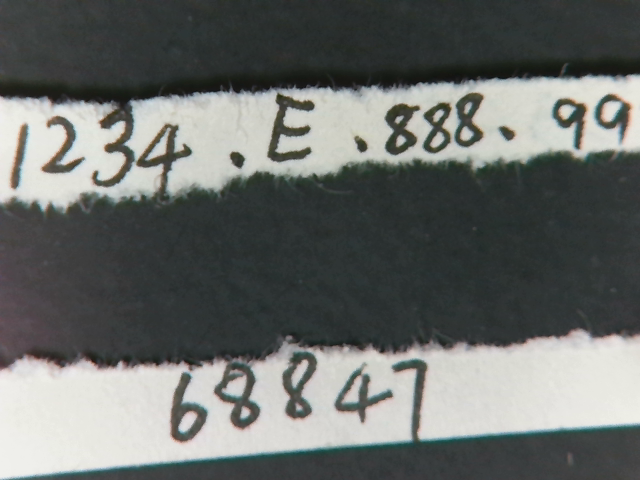 1234.E.888.99
68847